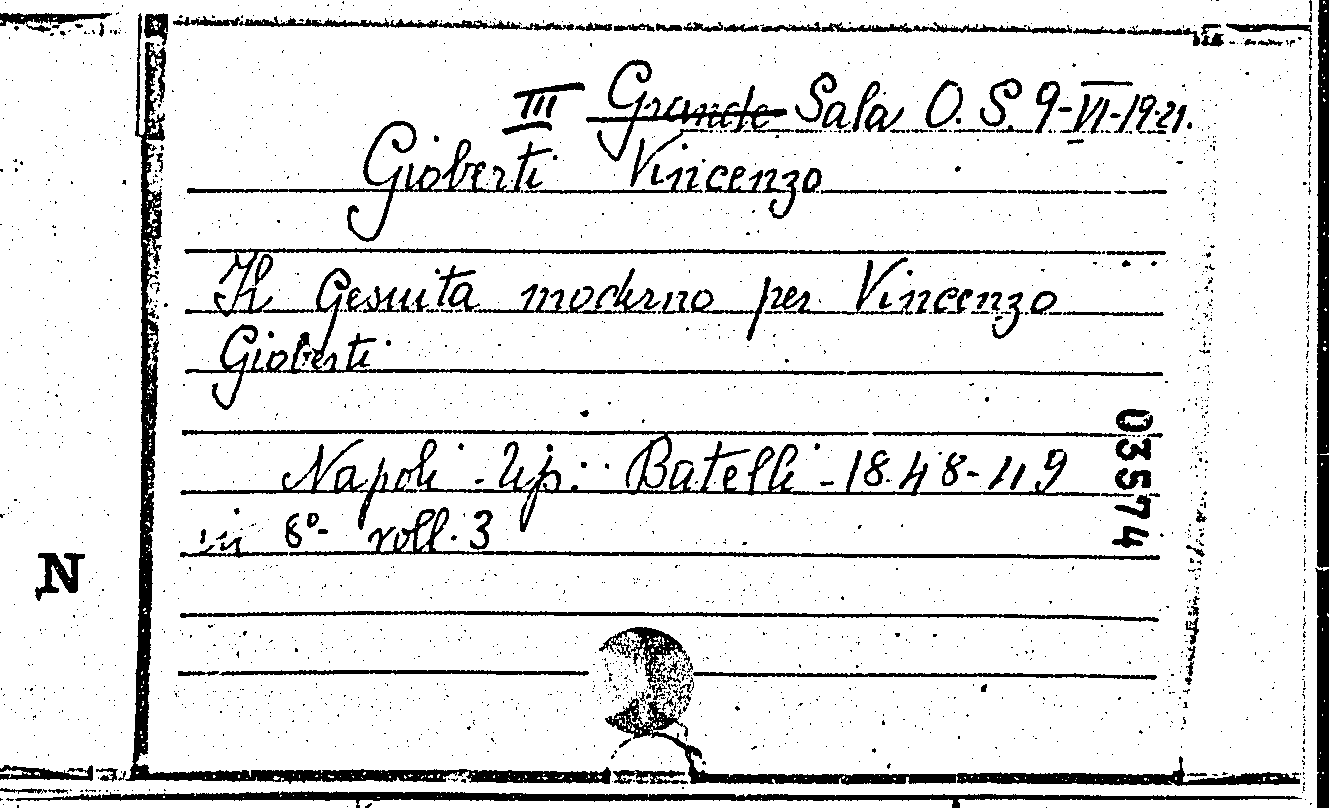 III Grande Sala O. S. 9-VI-19-21.
Gioberti Vincenzo
Il Gesuita moderno per Vincenzo
Gioberti
Napoli - Tip. Batelli - 1848-49
in 8º - voll. 3
03574
N